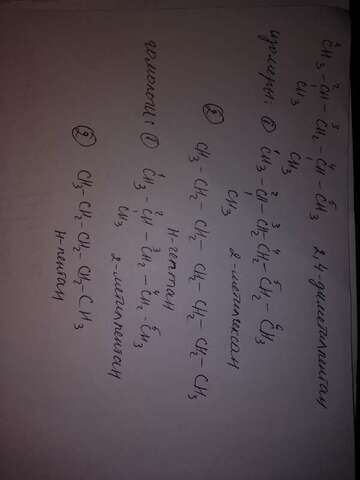 1 2 3 4 5
CH3 – CH – CH2 – CH – CH3 2,4-диметилпентан
CH3 CH3
изомеры: ① 1 2 3 4 5 6
CH3 – CH – CH2 – CH2 – CH2 – CH3
CH3 2-метилгексан
② CH3 – CH2 – CH2 – CH2 – CH2 – CH2 – CH3
н-гептан
гомологи: ① 1 2 3 4 5
CH3 – CH – CH2 – CH2 – CH3
CH3 2-метилпентан
② CH3 – CH2 – CH2 – CH2 – CH3
н-пентан